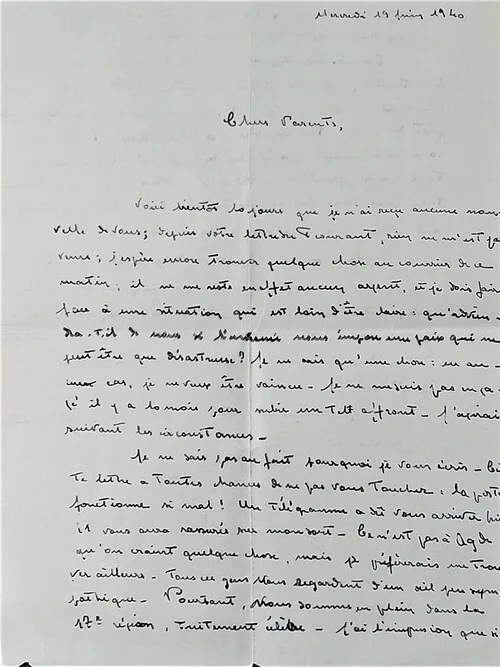 Mercredi 19 juin 1940
Chers Parents,
Voici bientôt 10 jours que je n'ai reçu aucune nou-
velle de vous ; depuis votre lettre du 7 courant, rien ne m'est par
venu ; j'espère encore trouver quelque chose au courrier de ce
matin, il ne me reste en effet aucun argent, et je dois fair
face à une situation qui est loin d'être claire : qu'advien-
dra-t-il de nous si l'ennemi nous impose une paix qui ne
peut être que désastreuse ? Je ne sais qu'une chose : en au-
cun cas, je ne veux être vaincu - Je ne me suis pas engа
gé il y a 10 mois, pour subir un tel affront - J'agirai
suivant les circonstances -
Je ne sais, pas au fait pourquoi je vous écris - Ce
te lettre a toutes chances de ne pas vous toucher : la post
fonctionne si mal ! Un télégramme a dû vous arriver
il vous aura rassurés sur mon sort - Ce n'est pas à Agde
qu'on craint quelque chose, mais je préfèrerais me trou
ver ailleurs - Tous ces gens nous regardent d'un œil peu sym
pathique - Pourtant, nous sommes en plein dans la
17e région, - J'ai l'impression que